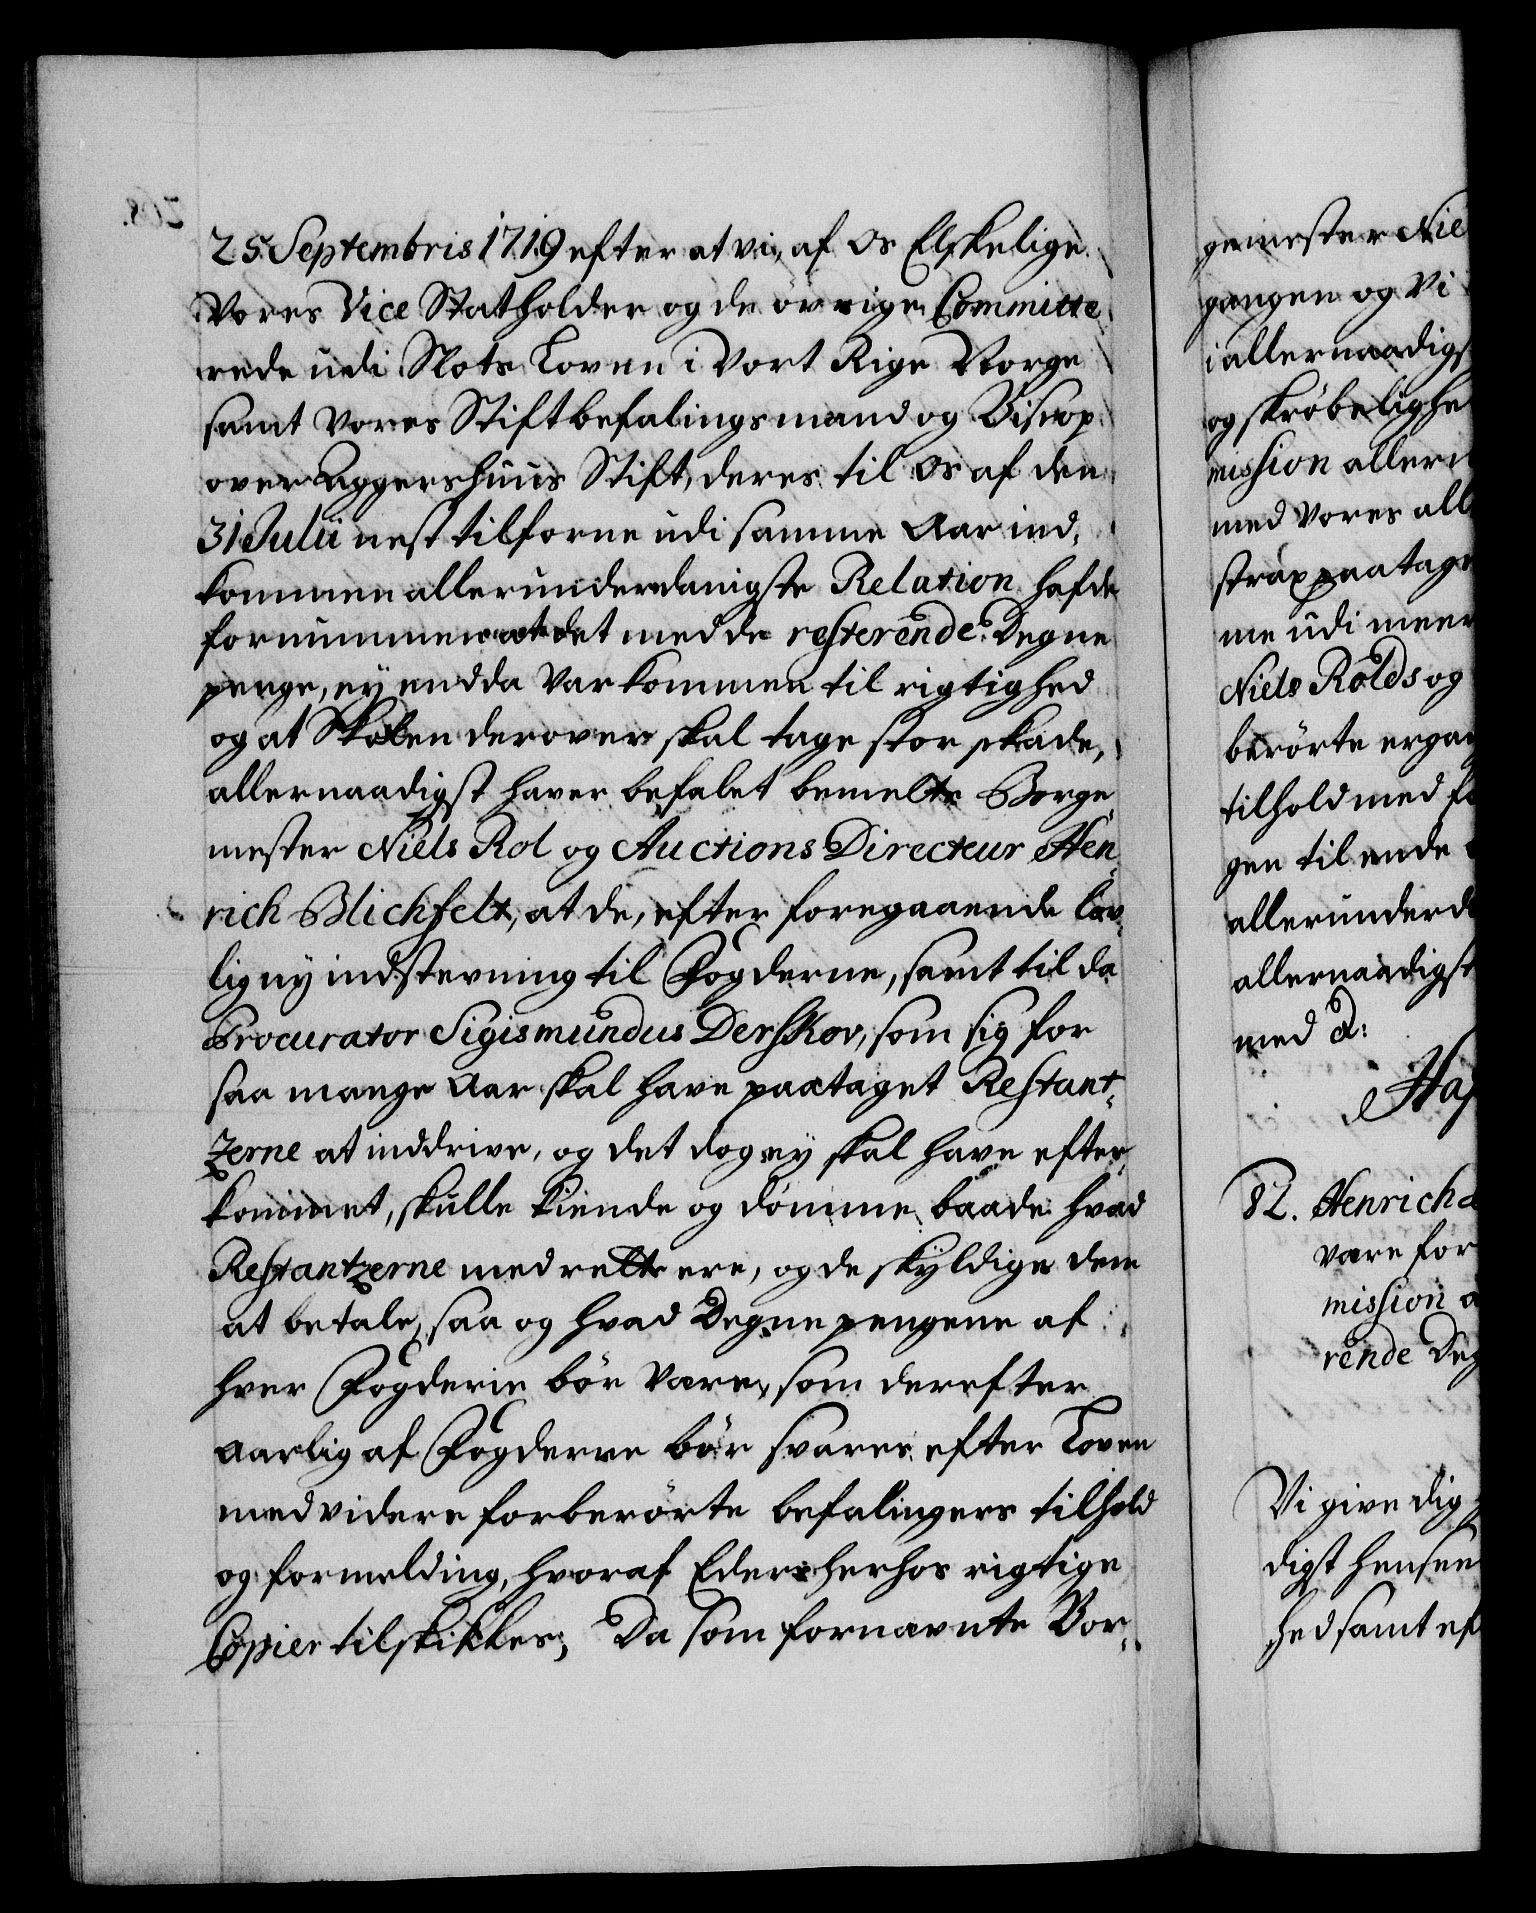 25 Septembris 1719 efter at vi, af os Elskelige
Vores Vice Statholder og de övrige Committe
rede udi Slots Loven i Vort Rige Norge
samt Vores Stiftbefalingsmand og Biscop
over Aggershuus Stift, deres til os af den
31 Julii nest tilforne udi samme Aar ind,
kommen allerunderdanigste Relation hafde
fornummen at det med de resterende Degne
penge, ey endda Var kommen til rigtighed
og at Skolen derover skal tage stor skade,
allernaadigst haver befalet bemelte Borge
mester Niels Rol og Auctions Directeur Hen
rich Blichfelt, at de, efter foregaaende lov,
lig ny indstevning til Fogderne, samt til da
Procurator Sigismundus Derskov, som sig for
saa mange Aar skal have paataget Restant,
zerne at inddrive, og det dog ey skal have efter,
kommet, skulle Kiende og dömme baade hvad
Restantzerne med rette ere, og de skyldige dem
at betale, saa og hvad Degne pengene af
hver Fogderie bör Være, som derefter
aarlig af Fogderne bör svares efter Loven
med videre forberörte befalingers tilhold
og formelding, hvoraf Eder herhos rigtige
Copier tilskikkes; Da som fornævnte Bor,
gemester Nie
gangen og Vi
i allernaadigs
og skröbelighe
mission allern
med Vores all
strax paatage
me udi meer
Niels Rolds og
berörte ergan
tilhold med fo
gen til ende
allerunderd
allernaadigst
med d:
Haf
82. Henrich
være for
mission a
rende Deg
Vi give dig
digst hensee
hed samt ef